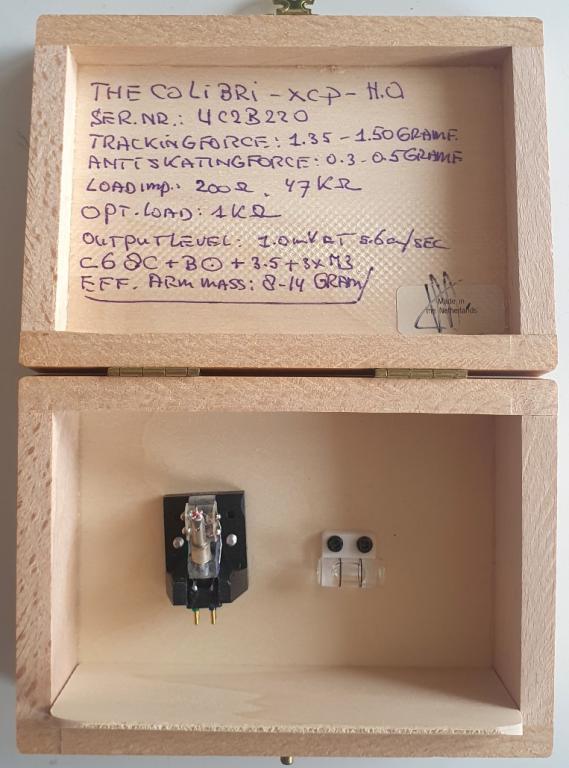 THE COLIBRI - XCP - H.O
SER.NR.: 4C2B220
TRACKINGFORCE: 1.35 - 1.50 GRAME.
ANTISKATINGFORCE: 0.3 - 0.5 GRAME
LOAD IMP.: 200Ω . 47KΩ
OPT. LOAD: 1KΩ
OUTPUTLEVEL: 1.0mV AT 5.6cm/SEC
EFF. ARM MASS: 8-14 GRAM
Made in
The Netherlands